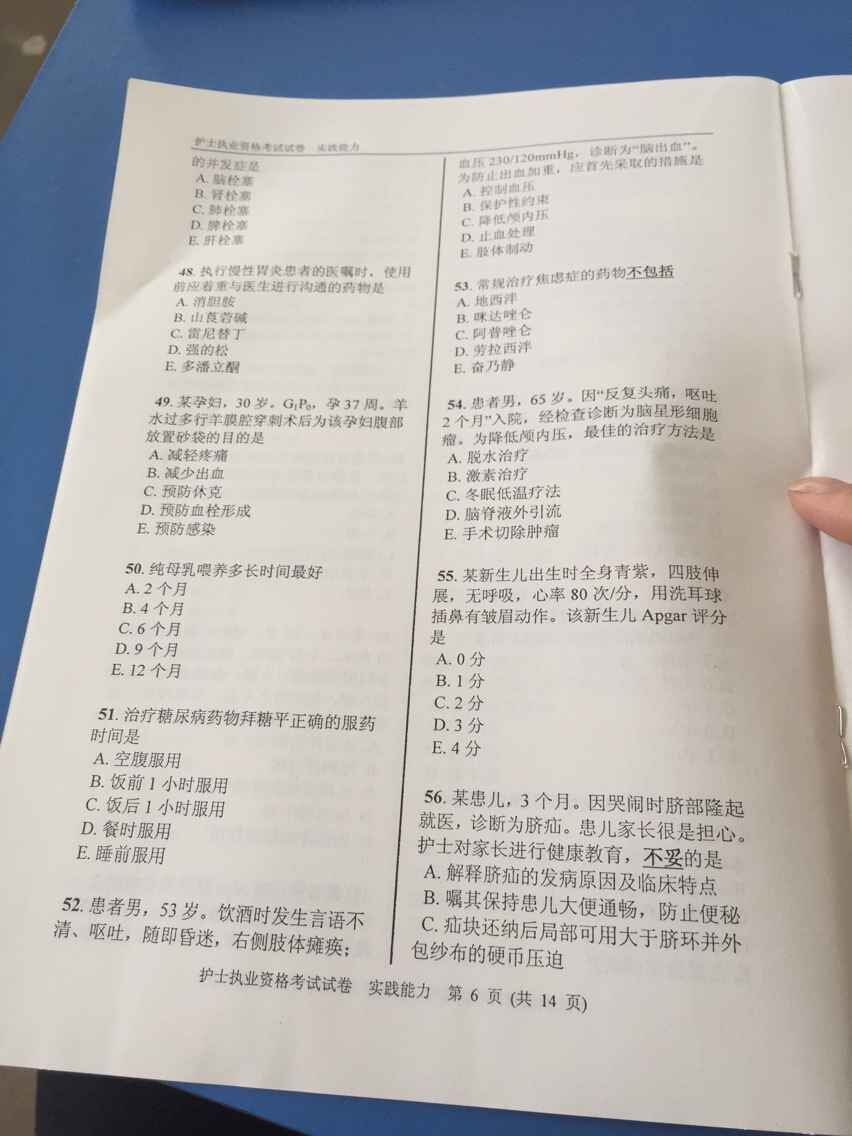 护士执业资格考试试卷 实践能力
的并发症是
A. 脑栓塞
B. 肾栓塞
C. 肺栓塞
D. 脾栓塞
E. 肝栓塞
48. 执行慢性胃炎患者的医嘱时，使用
前应着重与医生进行沟通的药物是
A. 消胆胺
B. 山莨菪碱
C. 雷尼替丁
D. 强的松
E. 多潘立酮
49. 某孕妇，30 岁。G₁P₀，孕 37 周。羊
水过多行羊膜腔穿刺术后为该孕妇腹部
放置砂袋的目的是
A. 减轻疼痛
B. 减少出血
C. 预防休克
D. 预防血栓形成
E. 预防感染
50. 纯母乳喂养多长时间最好
A. 2 个月
B. 4 个月
C. 6 个月
D. 9 个月
E. 12 个月
51. 治疗糖尿病药物拜糖平正确的服药
时间是
A. 空腹服用
B. 饭前 1 小时服用
C. 饭后 1 小时服用
D. 餐时服用
E. 睡前服用
52. 患者男，53 岁。饮酒时发生言语不
清、呕吐，随即昏迷，右侧肢体瘫痪；
血压 230/120mmHg，诊断为“脑出血”。
为防止出血加重，应首先采取的措施是
A. 控制血压
B. 保护性约束
C. 降低颅内压
D. 止血处理
E. 肢体制动
53. 常规治疗焦虑症的药物不包括
A. 地西泮
B. 咪达唑仑
C. 阿普唑仑
D. 劳拉西泮
E. 奋乃静
54. 患者男，65 岁。因“反复头痛，呕吐
2 个月”入院，经检查诊断为脑星形细胞
瘤。为降低颅内压，最佳的治疗方法是
A. 脱水治疗
B. 激素治疗
C. 冬眠低温疗法
D. 脑脊液外引流
E. 手术切除肿瘤
55. 某新生儿出生时全身青紫，四肢伸
展，无呼吸，心率 80 次/分，用洗耳球
插鼻有皱眉动作。该新生儿 Apgar 评分
是
A. 0 分
B. 1 分
C. 2 分
D. 3 分
E. 4 分
56. 某患儿，3 个月。因哭闹时脐部隆起
就医，诊断为脐疝。患儿家长很是担心。
护士对家长进行健康教育，不妥的是
A. 解释脐疝的发病原因及临床特点
B. 嘱其保持患儿大便通畅，防止便秘
C. 疝块还纳后局部可用大于脐环并外
包纱布的硬币压迫
护士执业资格考试试卷 实践能力 第 6 页 (共 14 页)